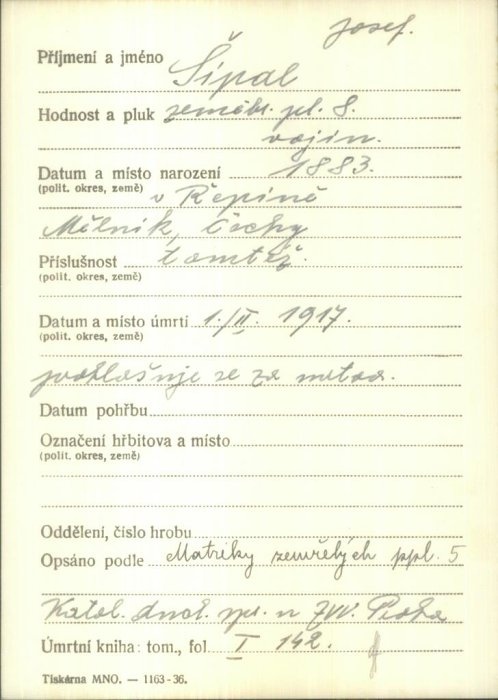 Josef.
Příjmení a jméno Šípal
Hodnost a pluk zeměbr. pl. 8.
vojín.
Datum a místo narození 1883.
(polit. okres, země) v Řepíně
Mělník, Čechy
Příslušnost tamtéž.
(polit. okres, země)
Datum a místo úmrtí 1./II. 1917.
(polit. okres, země)
prohlašuje se za mrtva.
Datum pohřbu
Označení hřbitova a místo
(polit. okres, země)
Oddělení, číslo hrobu
Opsáno podle Matriky zemřelých ppl. 5
Katol. duch. spr. u ZVV. Praha
Úmrtní kniha: tom., fol. I 142.
Tiskárna MNO. — 1163-36.